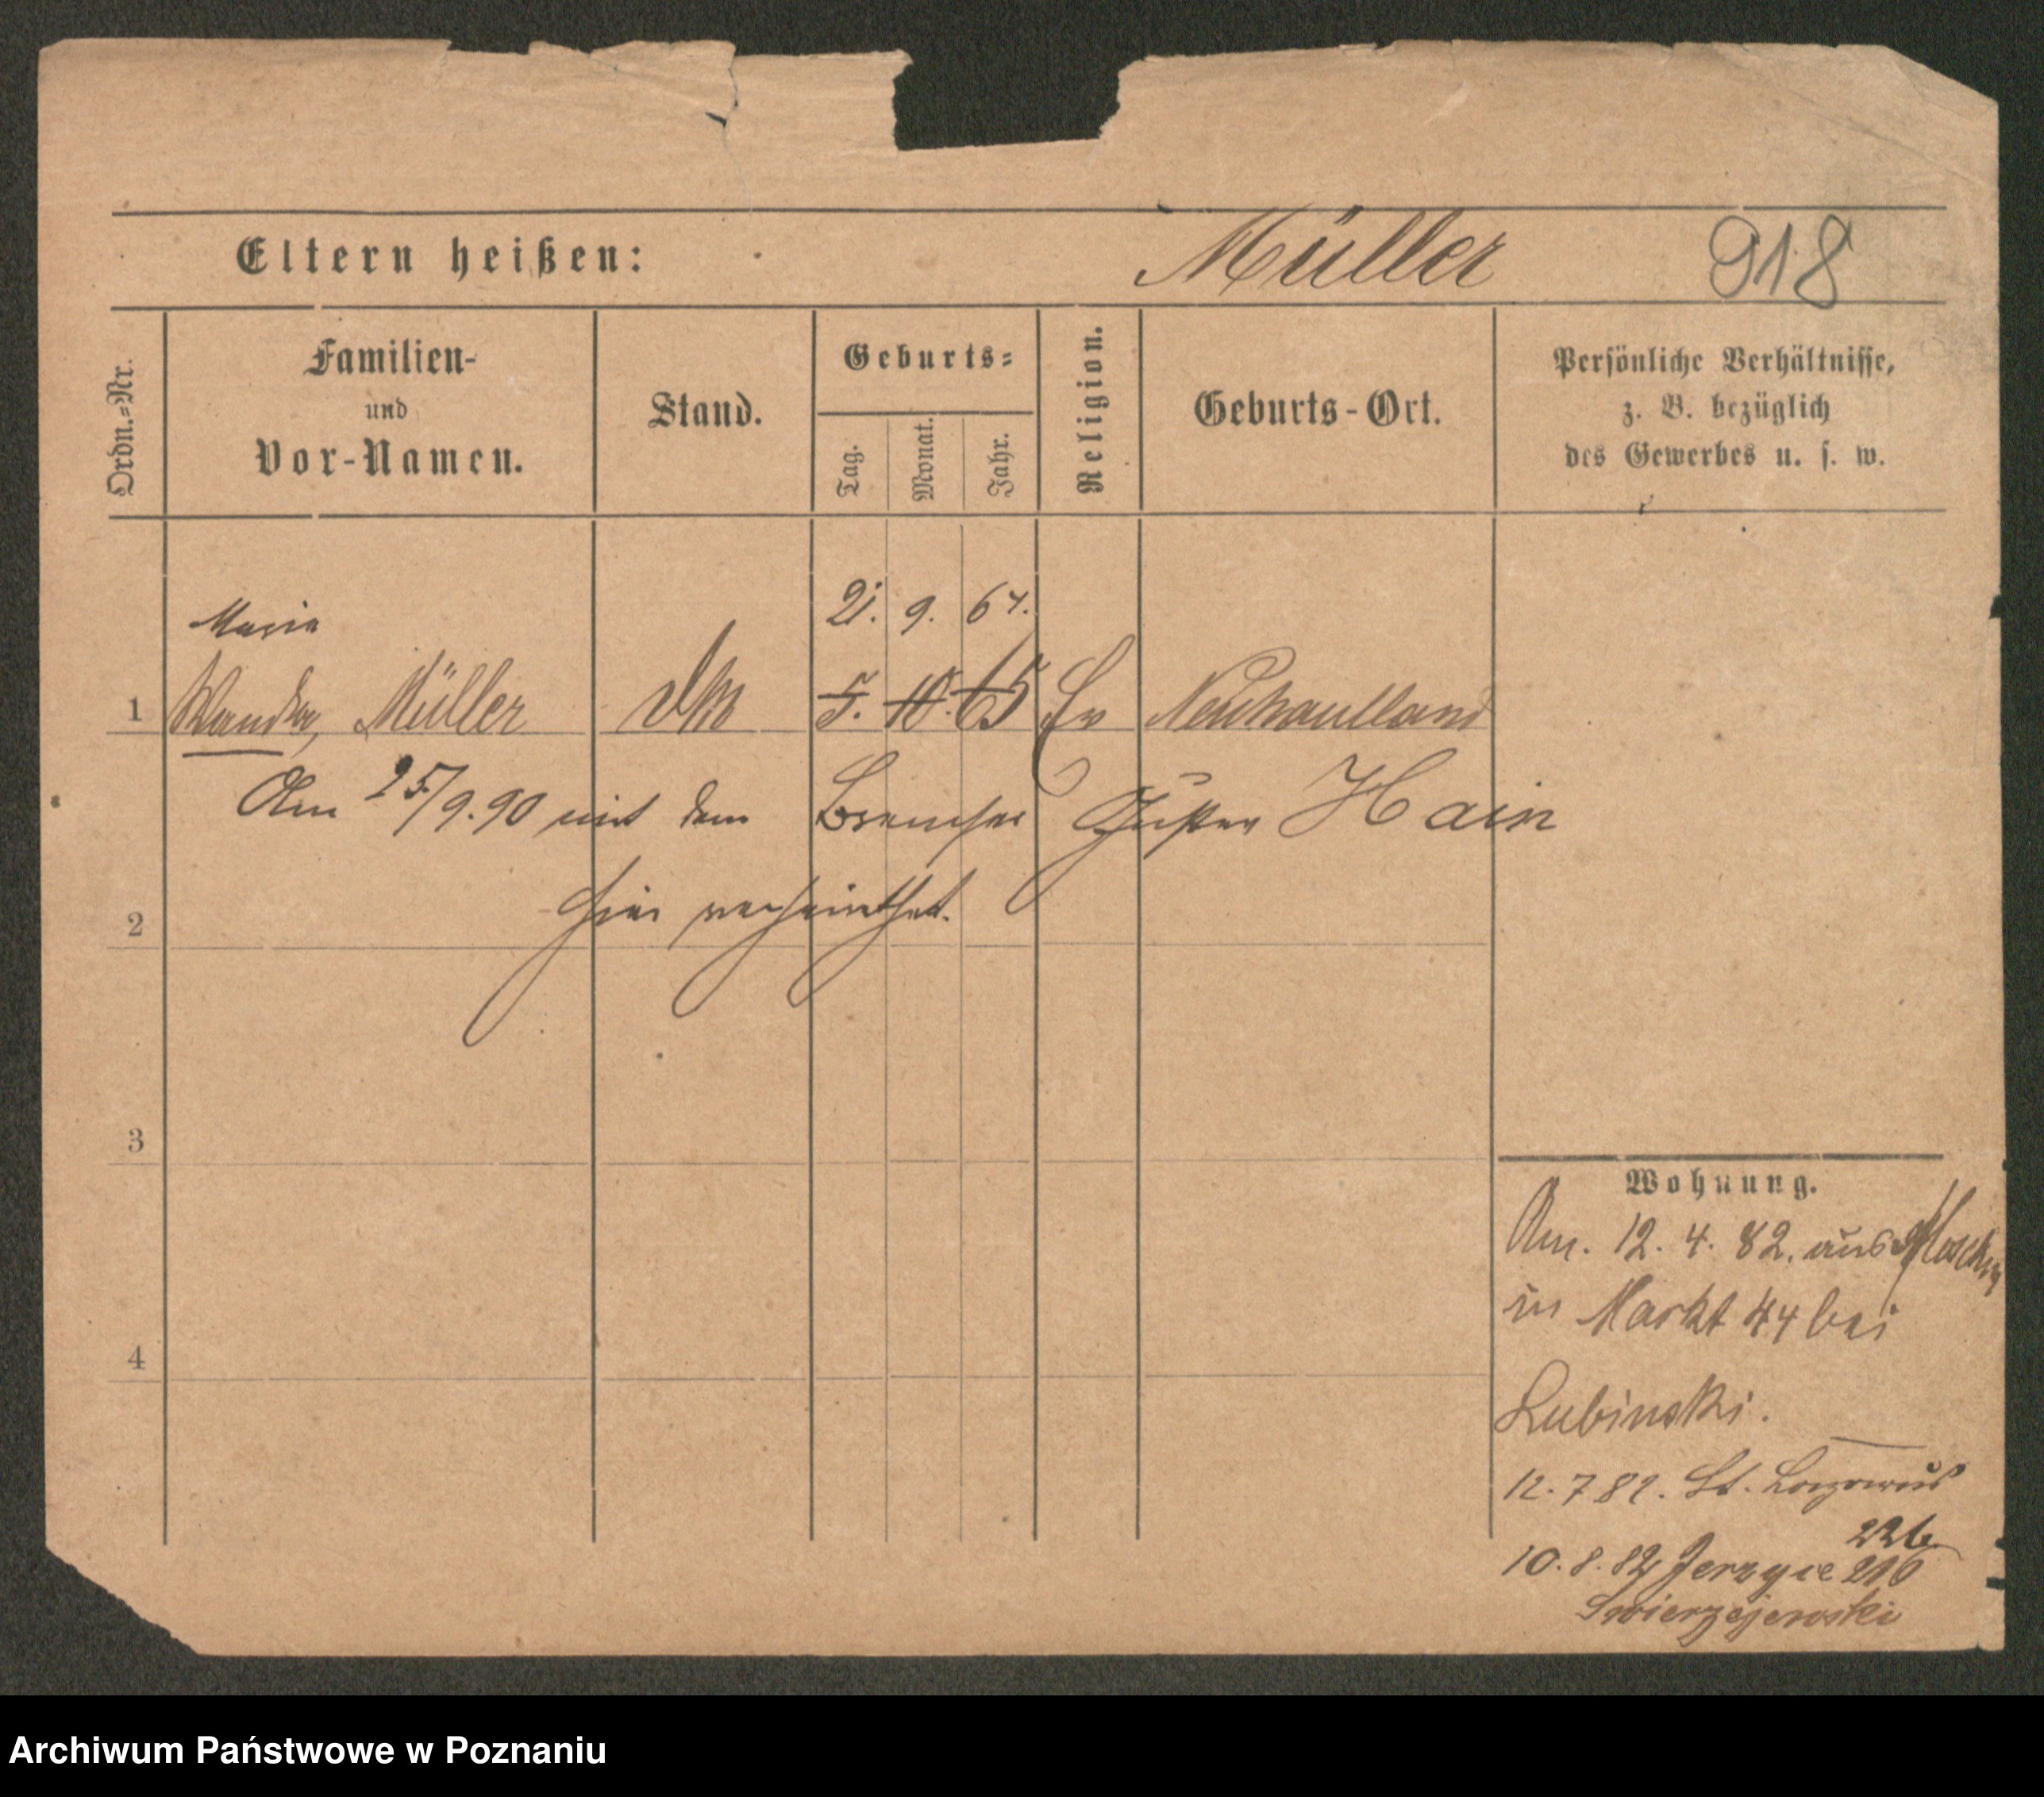 Eltern heißen: Müller 918
Ordn.=Nr.
Familien-
und
Vor-Namen.
Stand.
Geburts=
Tag.
Monat.
Jahr.
Religion.
Geburts-Ort.
Persönliche Verhältnisse,
z. B. bezüglich
des Gewerbes u. s. w.
Maria 21. 9. 64.
1 Wanda, Müller 5. 10. 65 Ev Neuhaulland
Am 25/9.90 mit dem Bremser Gustav Hain
2 hier verheirathet.
3
4
Wohnung.
Am. 12. 4. 82. aus Moschin
in Markt 44 bei
Lubinski.
12. 7 82. St. Lazarus
22b
10. 8. 82 Jerzyce 216
Swierzejewski
Archiwum Państwowe w Poznaniu